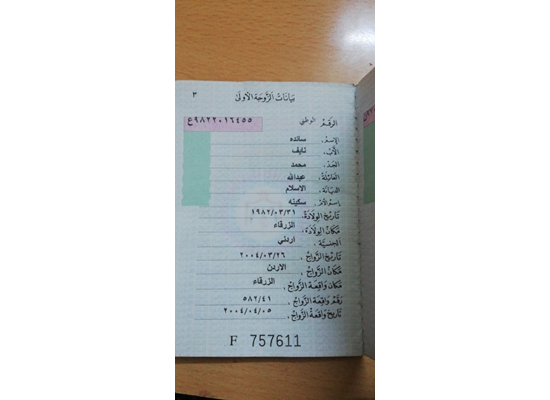 بيانات الزوجة الأولى ٣
الرقم الوطني ٩٨٢٢٠١٦٤٥٥ع
الإسم. سانده
الأب. نايف
الجد. محمد
العائلة. عبدالله
الديانة. الاسلام
إسم الأم. سكينه
تاريخ الولادة. ١٩٨٢/٠٣/٣١
مكان الولادة. الزرقاء
الجنسية. اردني
تاريخ الزواج. ٢٠٠٤/٠٣/٢٦
مكان الزواج. الاردن
مكان واقعة الزواج. الزرقاء
رقم واقعة الزواج. ٥٨٢/٤١
تاريخ واقعة الزواج. ٢٠٠٤/٠٤/٠٥
F 757611